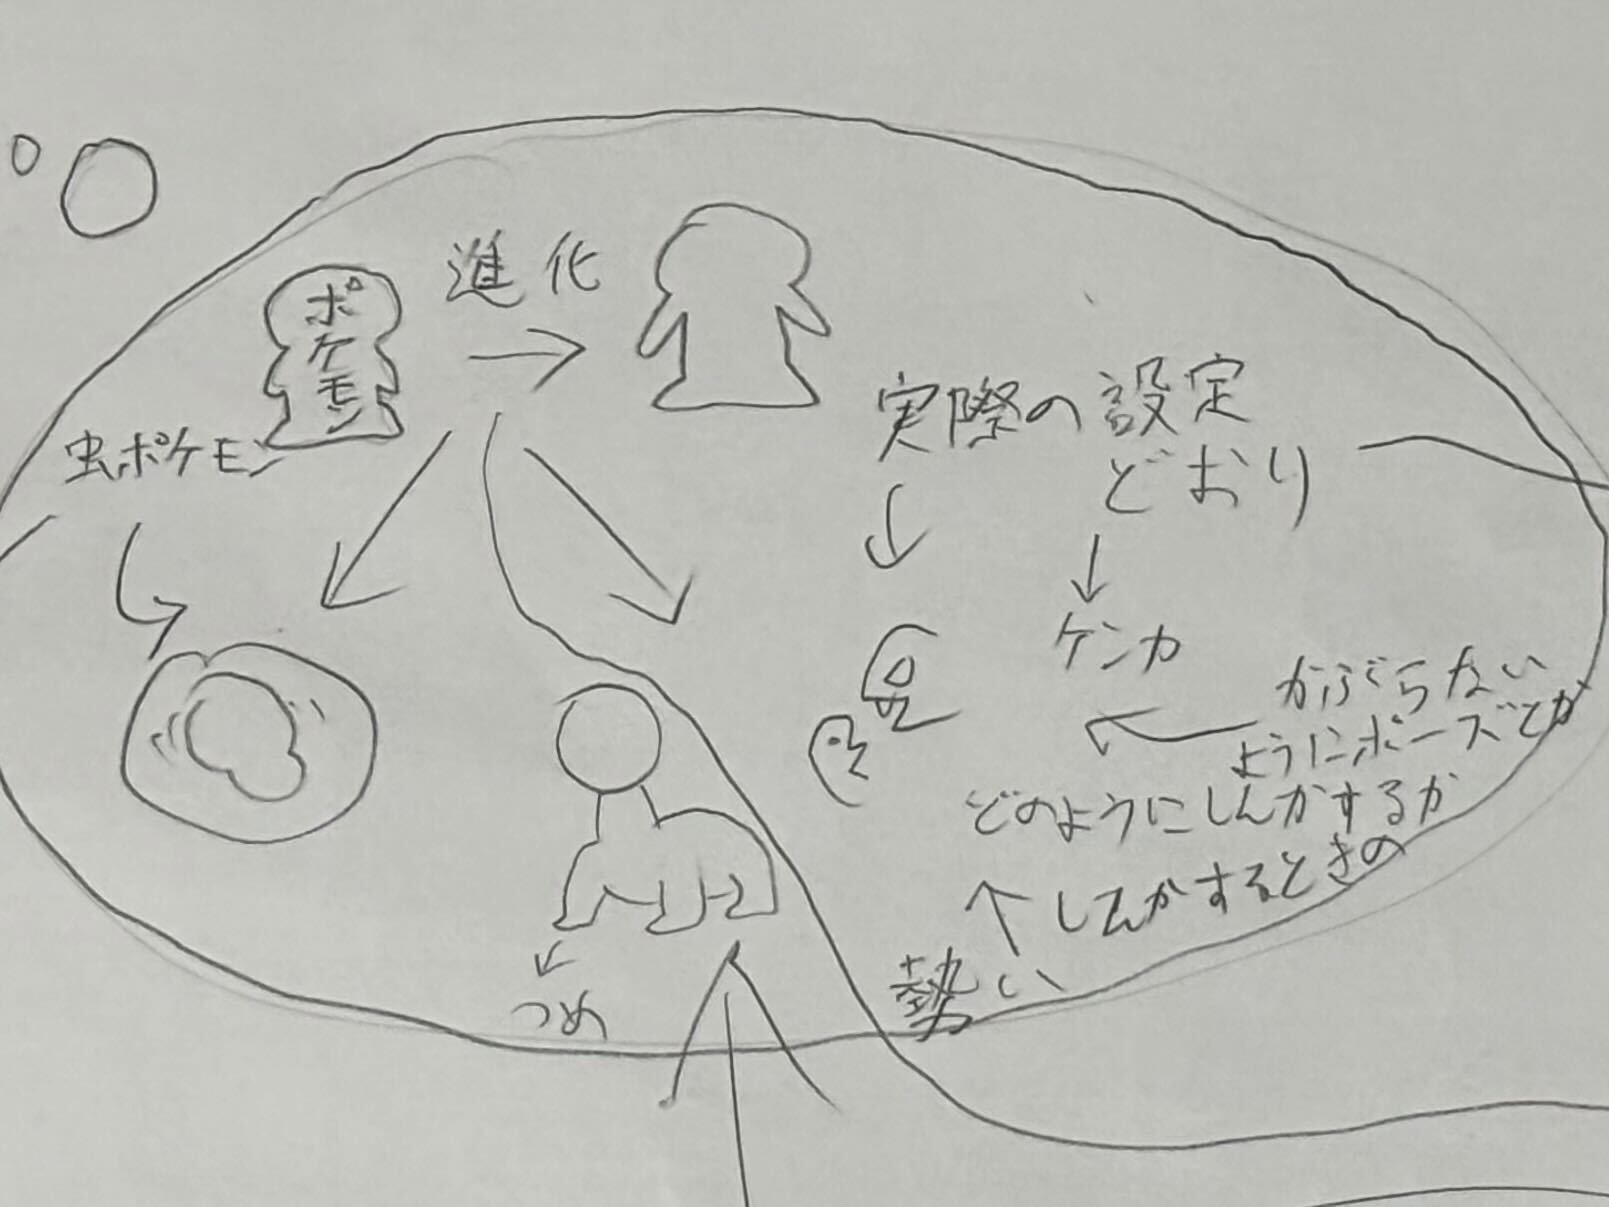 進化
ポケモン
虫ポケモン
実際の設定
どおり
ケンカ
かぶらない
ようにポーズとか
どのようにしんかするか
しんかするときの
勢い
つめ